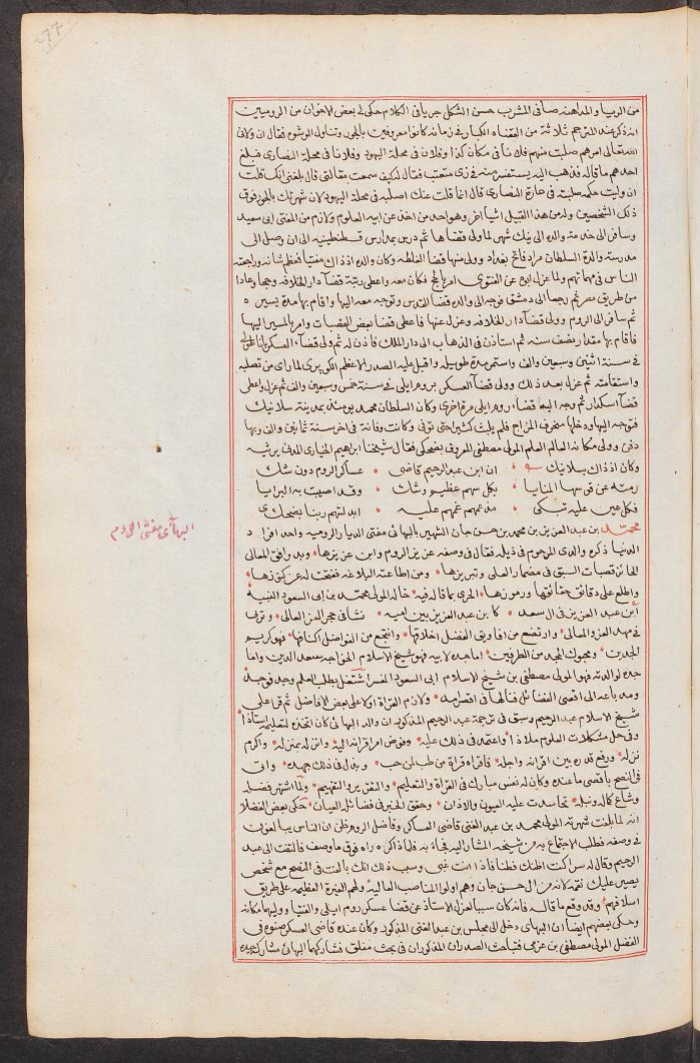 ٢٧٧
من الريا والمداهنه صافى المشرب حسن الشكل جرى فى الكلام حكى لى بعض الاخوان من الروميين
انه ذكر عند المترجم ثلاثة من القضاه الكبار فى زمانه كانوا معروفين بالمجون وتناول الرشوه فقال ان ولانى
الله تعالى امرهم صلبت منهم فلانا فى مكان كذا وفلان فى محلة اليهود وفلانا فى محلة النصارى فبلغ
احدهم ما قاله فذهب اليه يستفسر منه فى زى متعتب فقال له كيف سمعت مقالتى قال بلغنى انك قلت
ان وليت حكمه صلبته فى حارة النصارى قال انما قلت عنك اصلبه فى محلة اليهود لان شهرتك بالمجون فوق
ذلك الشخصين وله من هذا القبيل اشيا اخر وهو احد من اخذ عن ابيه العلوم ولازم من المفتى ابى سعيد
وسافر الى خدمة والده الى ينكى شهر لما ولى قضاها ثم درس بمدارس قسطنطينيه الى ان وصل الى
مدرسة والدة السلطان مراد فاتح بغداد وولى منها قضا الغلطه وكان والده اذ ذاك مفتيا فعظم شانه وراجعته
الناس فى مهماتهم ولما عزل ابوه عن الفتوى امر بالحج فكان معه واعطى رتبة قضآ دار الخلافه وحجا وعادا
من طريق مصر ثم رجعا الى دمشق فوجه الى والده قضآ القدس وتوجه معه اليها واقام بها مدة يسيره
ثم سافر الى الروم وولى قضآ دار الخلافه وعزل عنها فاعطى قضا بعض القصبات وامر بالمسير اليها
فاقام بها مقدار نصف سنه ثم استاذن فى الذهاب الى دار الملك فاذن له ثم ولى قضآ العسكر باناطولى
فى سنة اثنتين وسبعين والف واستمر مدة طويله واقبل عليه الصدر الاعظم الكوپرى لما راى من تصلبه
واستقامته ثم عزل بعد ذلك وولى قضآ العسكر بروم ايلى فى سنة خمس وسبعين والف ثم عزل واعطى
قضآ اسكدار ثم وجه اليه قضاء روم ايلى مرة اخرى وكان السلطان محمد يومئذ بمدينة سلانيك
فتوجه اليها ودخلها منحرف المزاج فلم يلبث كثيرا حتى توفى وكانت وفاته فى اخر سنة ثمانين والف وبها
دفن وولى مكانه العالم العلم المولى مصطفى المعروف بضحكى فقال شيخنا ابراهيم الخيارى المدنى يرثيه
وكان اذ ذاك بسلانيك • ان ابن عبد الرحيم قاضى • عساكر الروم دون شك
رمته عن قوسها المنايا • بكل سهم عظيم وشك • وقد اصيبت به البرايا
فكل عين عليه تبكى • مذ عمهم غمهم عليه • ابدلتهم ربنا بضحكى
محمد بن عبد العزيز بن محمد بن حسن جان الشهير بالبهائى مفتى الديار الروميه واحد افراد
الدنيا ذكره والدى المرحوم فى ذيله فقال فى وصفه عزيز الروم وابن عزيزها • وبدر افق المعالى
الحائز قصبات السبق فى مضمار العلى وتبريزها • ومن اطاعته البلاغه ففتحت له عن كنوزها •
واطلع على دقائق حقائقها ورموزها • الحرى بما قال فيه • خاله المولى محمد بن ابى السعود النبيه
ابن عبد العزيز فى ال سعد • كابن عبد العزيز بين اميه • نشا فى حجر العز العالى • وتربى
فى مهد العز والمعالى • وارتضع من افاويق الفضل اخلاقها • وانتجع من الفواضل اكنافها • فهو كريم
الجدين • ومحبوك المجد من الطرفين • اما جده لابيه فهو شيخ الاسلام الخواجه سعد الدين واما
جده لوالدته فهو المولى مصطفى بن شيخ الاسلام ابى السعود المفسر اشتغل بطلب العلم وجد فوجد
ومد باعه الى اقصى الفضائل فنالها فى اقصر امد • ولازم القراة اولا على بعض الافاضل ثم قرا على
شيخ الاسلام عبد الرحيم وسبق فى ترجمة عبد الرحيم المذكور ان والد البهائى كان اتخذه لتعليمه استاذا
وفى حل مشكلات العلوم ملاذا • واعتمد فى ذلك عليه • وفوض امر اقرائه اليه • وانزله بمنزله • واكرم
نزله • ورفع قدره بين اقرانه واجله • فاقراه قراة من طب لمن حب • وبذل فى ذلك جهده • واتى
فى النصح باقصى ما عنده وكان له نفس مبارك فى القراة والتعليم • والتقرير والتفهيم • ولما اشتهر فضله
وشاع كماله ونبله • تحاسدت عليه العيون والاذان • وحقق الخبر فى فضائله العيان • حكى بعض الفضلا
انه لما بلغت شهرته المولى محمد بن عبد الغنى قاضى العساكر وفاضل الروم ظن ان الناس يبالغون
فى وصفه فطلب الاجتماع به من شيخه المشار اليه فجآء به فلما ذاكره راه فوق ما وصف فالتفت الى عبد
الرحيم وقال له سرا كنت اظنك فطنا فاذا انت غبى وسبب ذلك انك بالغت فى النصح مع شخص
يصير عليك نقمه لانه من ال حسن جان وهم اولو المناصب العاليه • ولهم الغيرة العظيمه على طريق
اسلافهم • وقد وقع ما قاله فانه كان سببا لعزل الاستاذ عن قضا عسكر روم ايلى والفتيا ووليهما مكانه
وحكى بعضهم ايضا ان البهائى دخل الى مجلس بن عبد الغنى المذكور وكان عنده قاضى العسكر صنوه فى
الفضل المولى مصطفى بن عزمى فتباحث الصدران المذكوران فى بحث مغلق فشاركهما البهائى مشاركة جيده
البهائى مفتى الروم